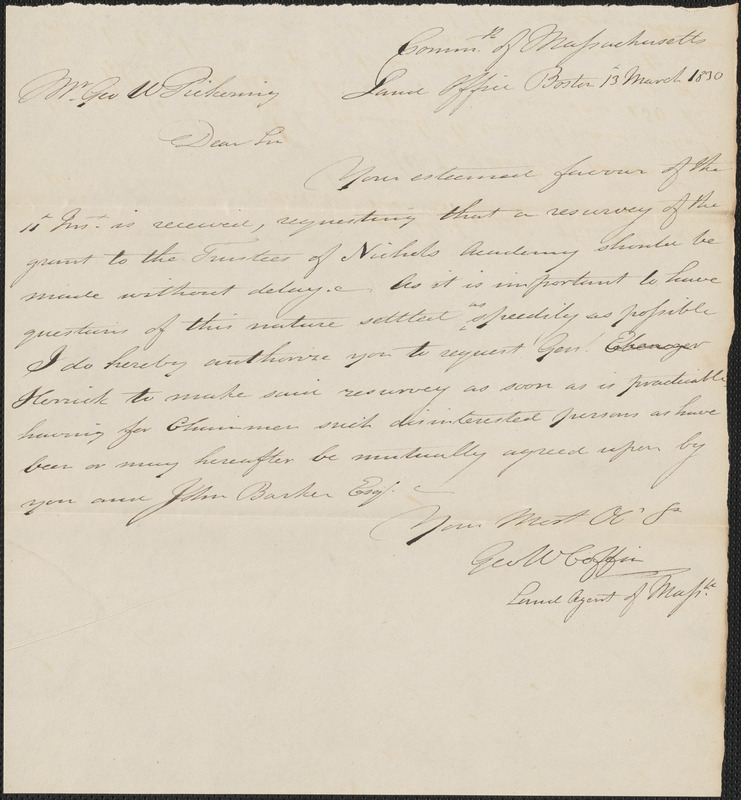 Commth of Massachusetts
Land Office Boston 13 March 1830
Mr Geo W Pickering
Dear Sir
Your esteemed favour of the
11th Inst. is received, requesting that a resurvey of the
grant to the Trustees of Nichols Academy should be
made without delay. As it is important to have
questions of this nature settled as speedily as possible
I do hereby authorize you to request Genl. Ebenezer
Herrick to make said resurvey as soon as is practicable
having for Chainmen such disinterested persons as have
been or may hereafter be mutually agreed upon by
you and John Barker Esqr.
Your Most Ob St
Geo W Coffin
Land Agent of Massts.